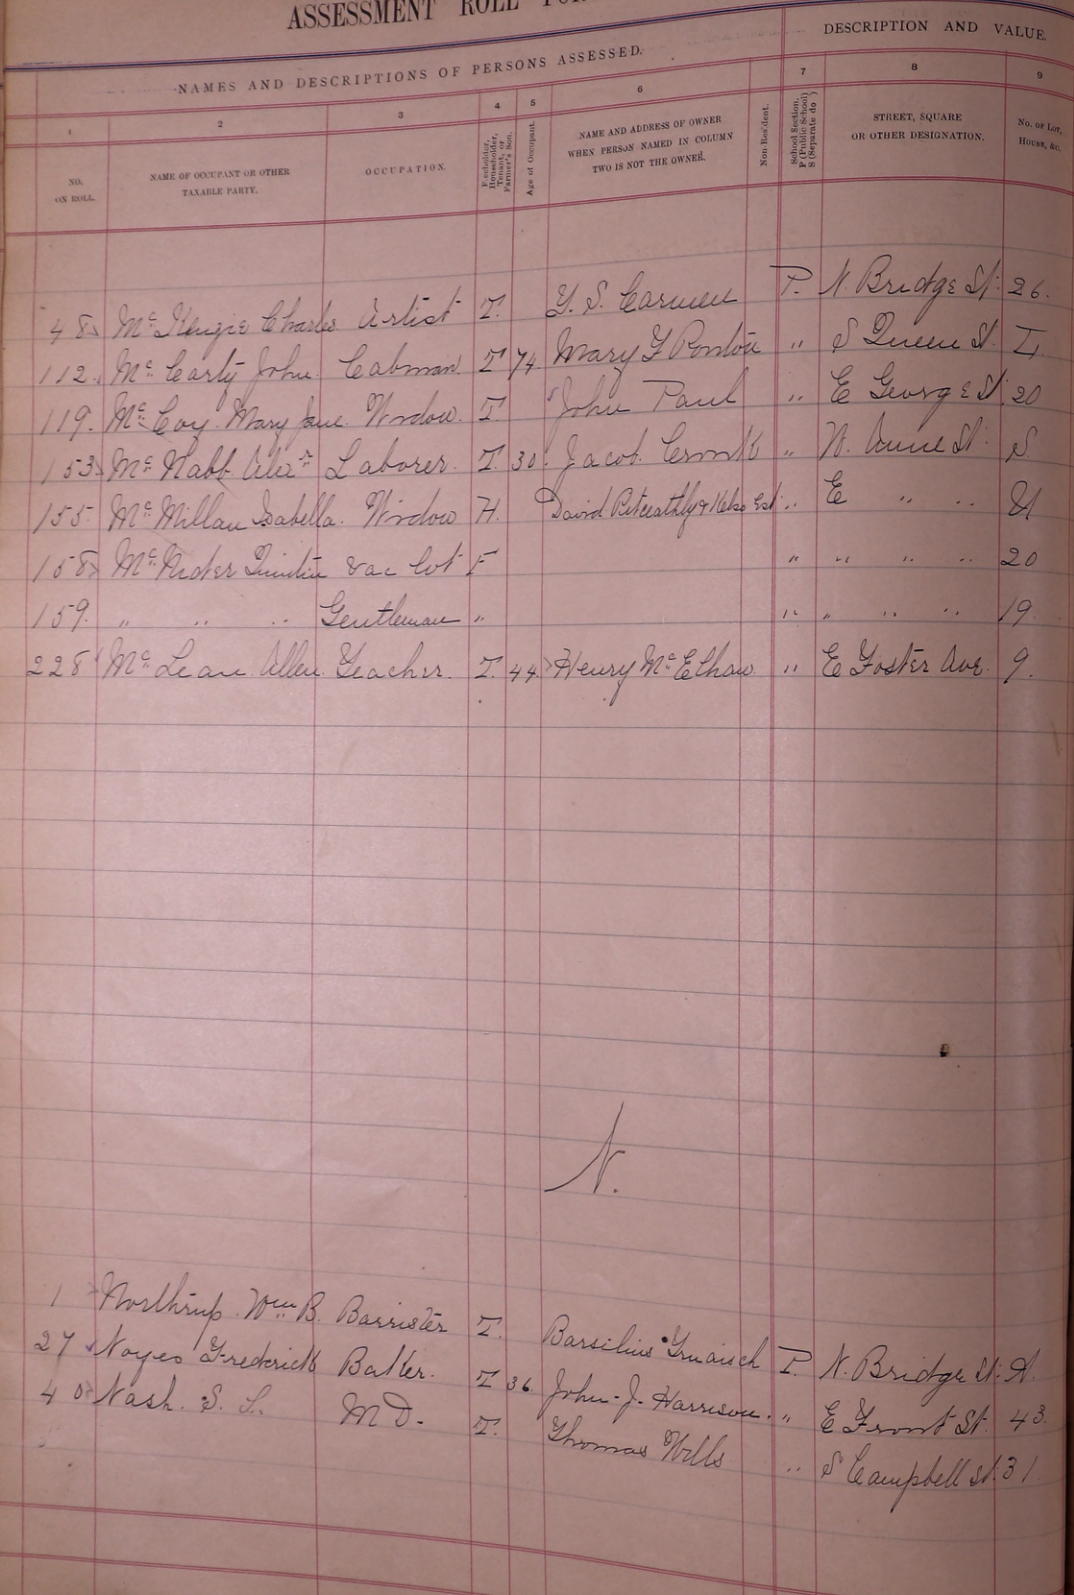 ASSESSMENT ROLL FOR
NAMES AND DESCRIPTIONS OF PERSONS ASSESSED. DESCRIPTION AND VALUE.
1 2 3 4 5 6 7 8 9
NO. ON ROLL. NAME OF OCCUPANT OR OTHER TAXABLE PARTY. OCCUPATION. Freeholder, Householder, Tenant, or Farmer's Son. Age of Occupant. NAME AND ADDRESS OF OWNER WHEN PERSON NAMED IN COLUMN TWO IS NOT THE OWNER. Non-Resident. School Section, P (Public School) S (Separate do ) STREET, SQUARE OR OTHER DESIGNATION. No. of Lot, House, &c.
48 Mc Kenzie Charles Artist T. Y. S. Carmen P. N. Bridge St. 26.
112. Mc Carty John Cabman. T 74 Mary F Ronton " S Queen St. I
119. Mc Coy Mary Jane Widow. T. John Paul " E George St 20
153 Mc Nabb Alexr Laborer. T. 30 Jacob Cronk " W. Anne St. S
155 Mc Millan Isabella. Widow H. David Pitceathly & Kelso Est " E " "
158 Mc Quintin vac lot F " " " " 20
159. " " " Gentleman " " " " " 19
228 Mc Lean Allen Teacher. T. 44 Henry Mc Elhaw " E Foster Ave. 9.
N.
1 Northrup Wm B. Barrister T. P. N. Bridge St. A
27 Noyes Frederick Baker. T 36 John J. Harrison. " E Front St. 43
40 Nash. S. L. M D. T. Thomas Wills " S Campbell st. 31